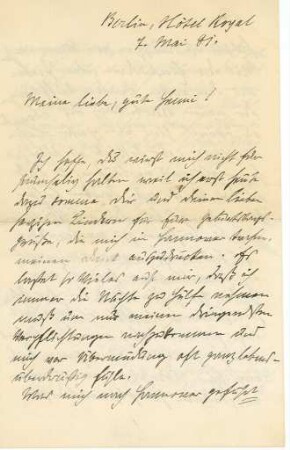 Berlin, Hôtel Royal
7. Mai 81.
Meine liebe, gute Henni!
Ich hoffe, du wirst mich nicht für
halten weil ich erst heute
dazu komme, Dir und Deinen lieben
Kindern für Eure Geburtstags-
grüße, die mich in Hannover trafen,
meinen Dank auszudrücken. Es
lastet so Vieles auf mir, daß ich
immer die Nächte zu Hülf nehmen
muß um nur meinen dringendsten
Verpflichtungen nachzukommen und
mich vor Übermüdung oft ganz lebens-
überdrüssig fühle.
Was mich nach Hannover geführt